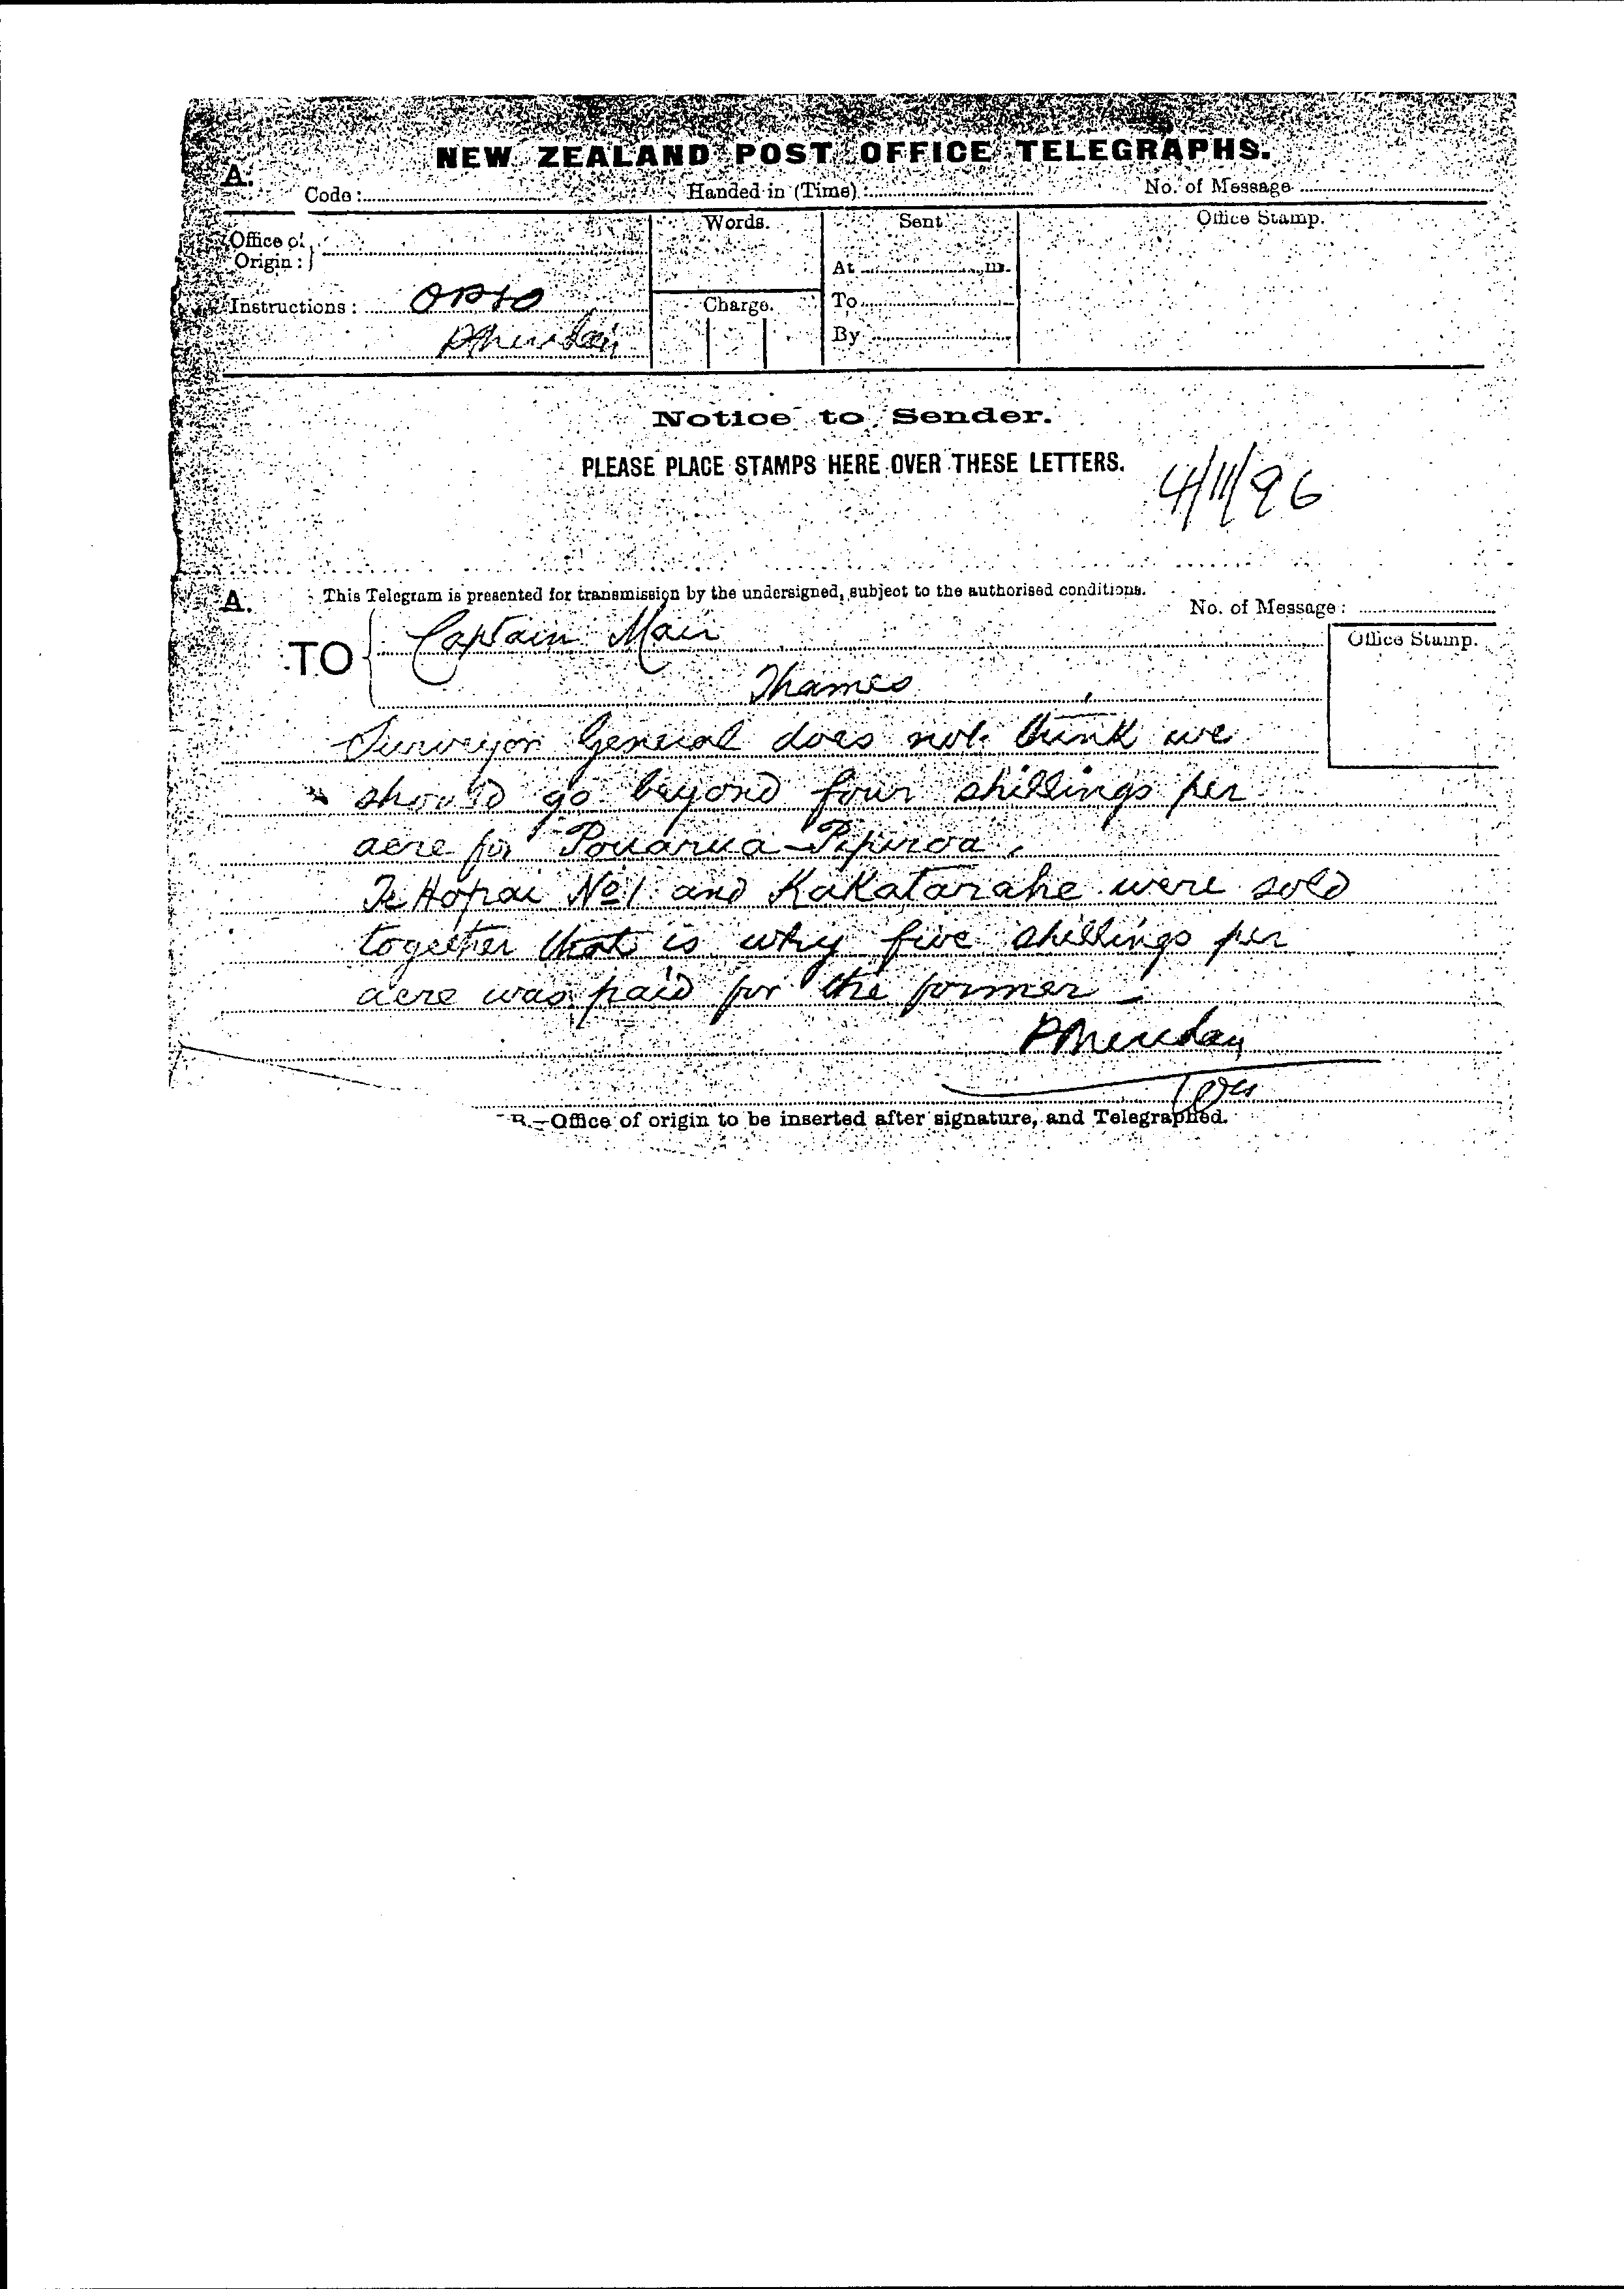 NEW ZEALAND POST OFFICE TELEGRAPHS.
A.
Code: Handed in (Time) No. of Message
Words. Sent Office Stamp.
Office of Origin:
At m.
Instructions: OPSO Charge. To
PSheridan By
Notice to Sender.
PLEASE PLACE STAMPS HERE OVER THESE LETTERS.
4/11/96
A. This Telegram is presented for transmission by the undersigned, subject to the authorised conditions.
No. of Message:
TO Captain Mair Office Stamp.
Thames
Surveyor General does not think we
should go beyond four shillings per
acre for Pouarua-Pipiroa.
Te Hopai No 1 and Kakatarahe were sold
together that is why five shillings per
acre was paid for the former
PSheridan
B.—Office of origin to be inserted after signature, and Telegraphed.